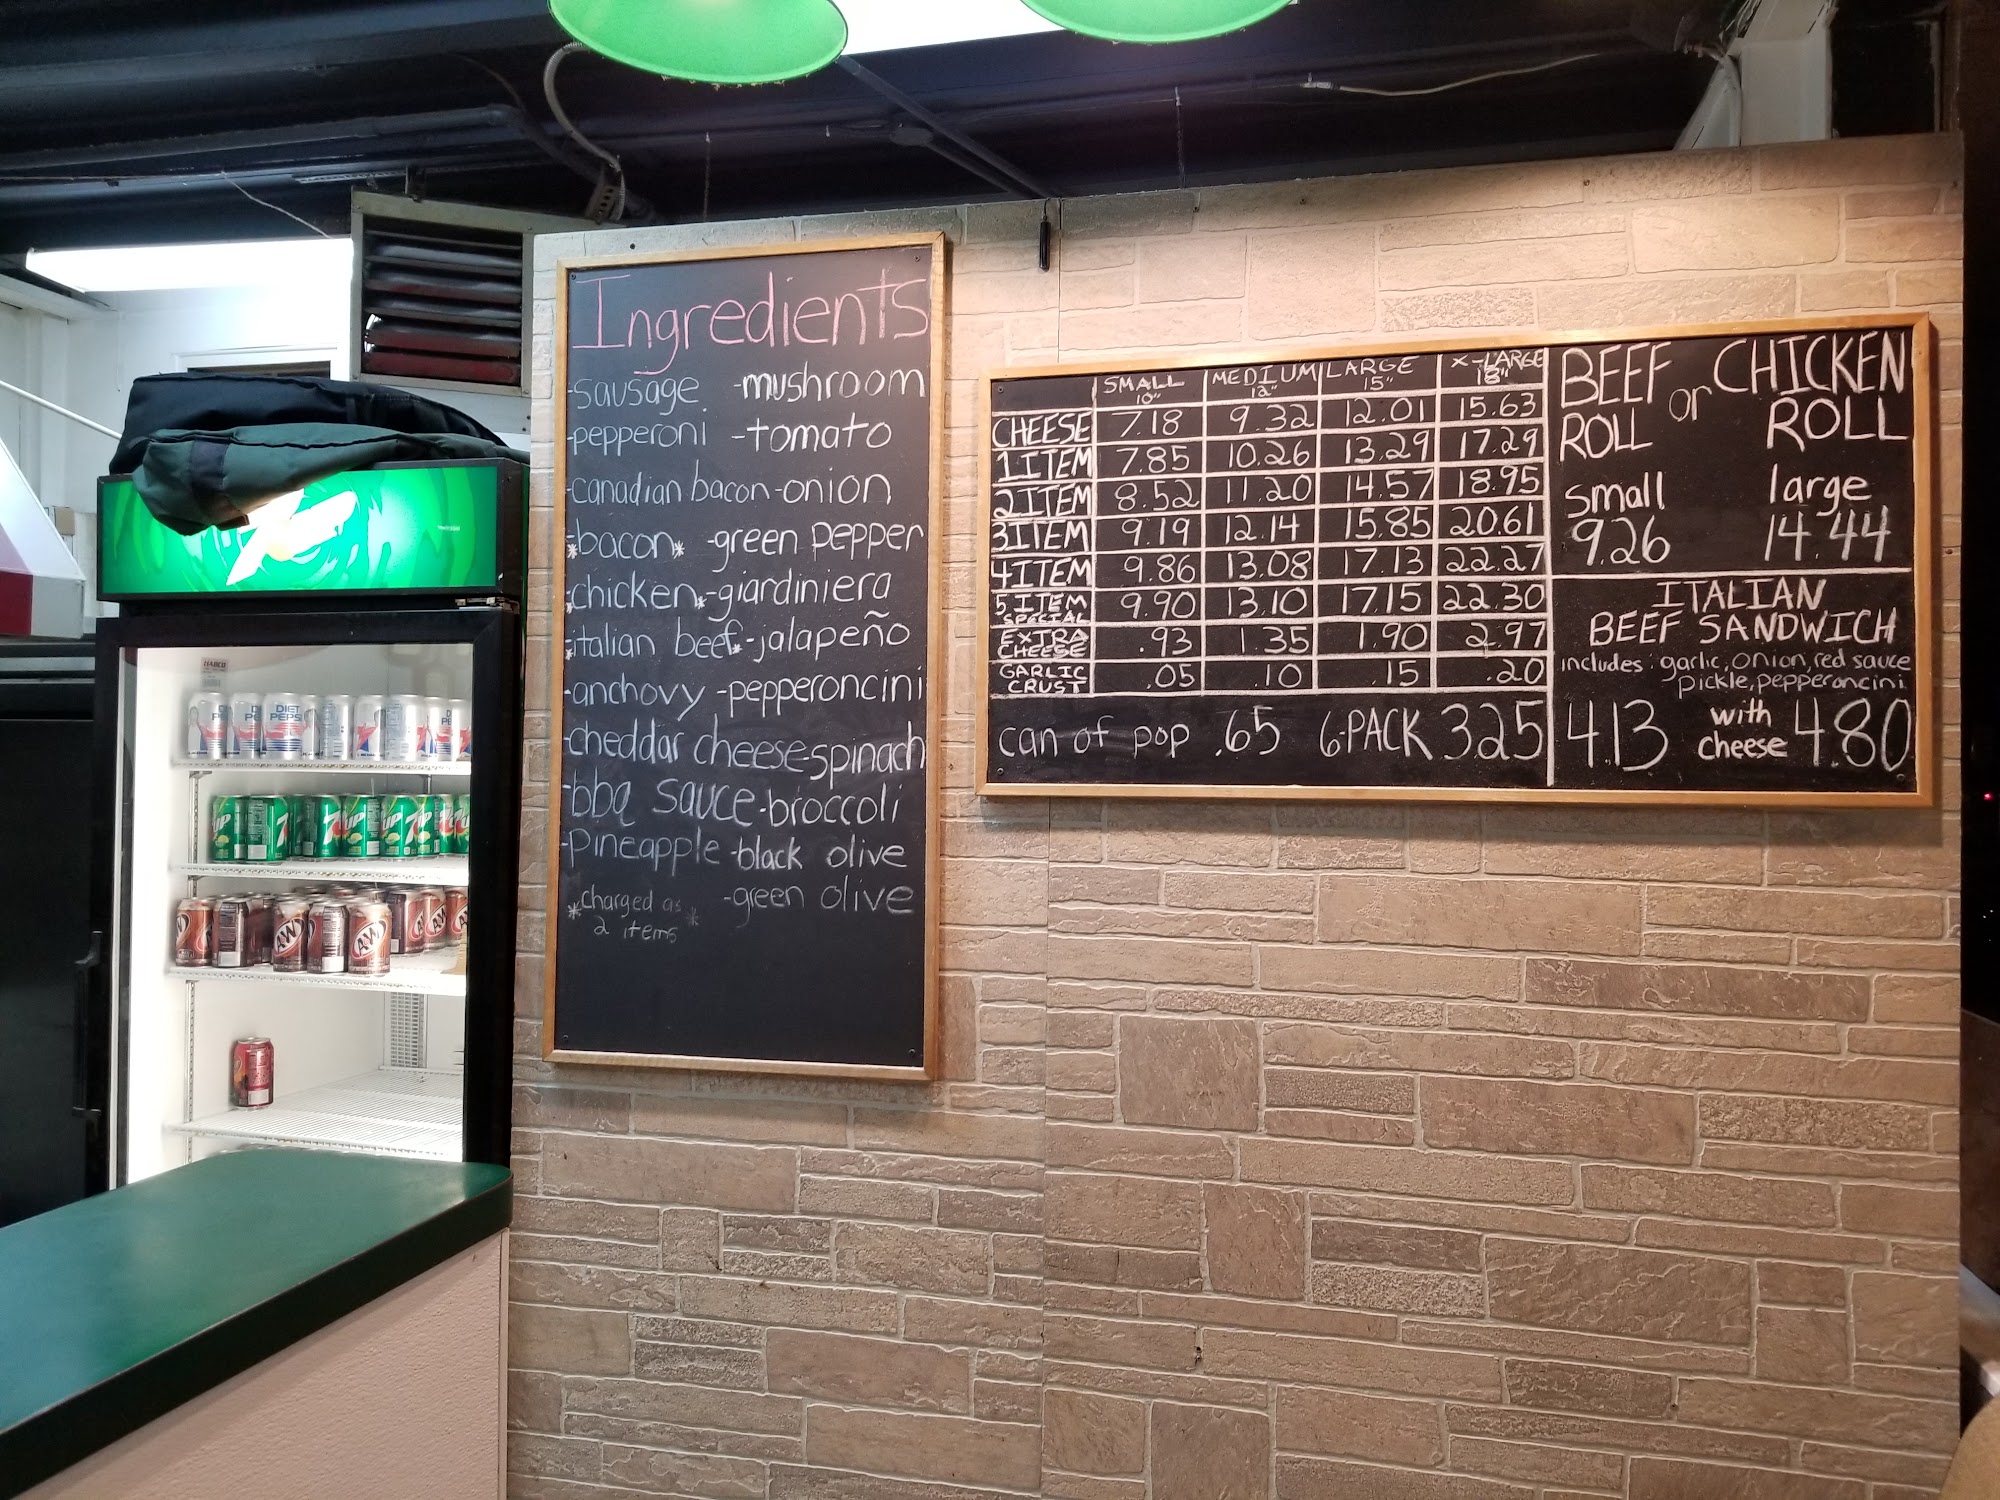 Ingredients
-sausage -mushroom
-pepperoni -tomato
-canadian bacon -onion
*bacon* -green pepper
*chicken* -giardiniera
*italian beef* -jalapeño
-anchovy -pepperoncini
-cheddar cheese -spinach
-bbq sauce -broccoli
-pineapple -black olive
*charged as 2 items* -green olive
SMALL 10" MEDIUM 12" LARGE 15" X-LARGE 18"
CHEESE 7.18 9.32 12.01 15.63
1 ITEM 7.85 10.26 13.29 17.29
2 ITEM 8.52 11.20 14.57 18.95
3 ITEM 9.19 12.14 15.85 20.61
4 ITEM 9.86 13.08 17.13 22.27
5 ITEM SPECIAL 9.90 13.10 17.15 22.30
EXTRA CHEESE .93 1.35 1.90 2.97
GARLIC CRUST .05 .10 .15 .20
can of pop .65 6-PACK 3.25
BEEF ROLL or CHICKEN ROLL
small large
9.26 14.44
ITALIAN
BEEF SANDWICH
includes: garlic, onion, red sauce
pickle, pepperoncini
4.13 with cheese 4.80
DIET PEPSI
7UP
A&W